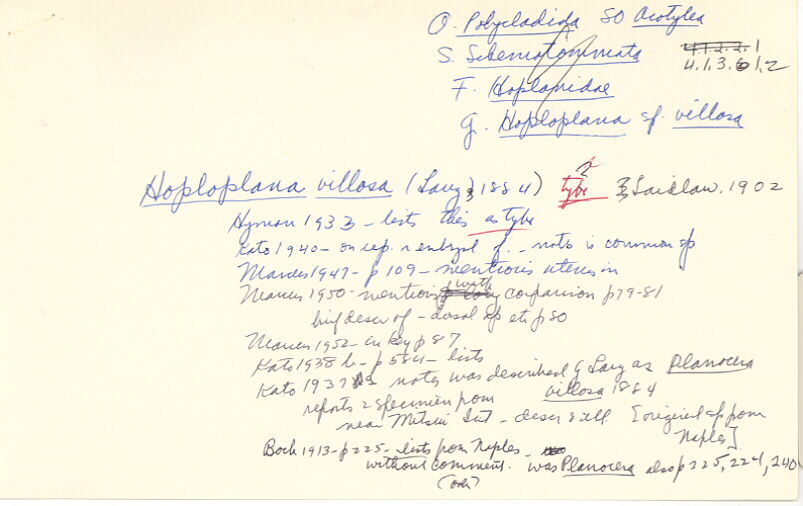 O. Polycladida SO Acotylea
S. Schematommata 4.1.2.2.1
4.1.3.6.1.2
F. Hoplanidae
G. Hoploplana sp. villosa
Hoploplana villosa (Lang, 1884) type ? Laidlaw. 1902
Hyman 1933 - lists this as type
Kato 1940 - on rep. & embryol of - notes is common sp
Marcus 1947 - p 109 - mentions uterus in
Marcus 1950 - mentions with comparison p79-81
brief descr of - dorsal sp etc p 80
Marcus 1952 - in key p 87
Kato 1938 b - p 584 - lists
Kato 1937 notes was described by Lang as Planocera
villosa 1884
reports 2 specimen from
near Mitsui Inst - descr & ill. [original sp from
Naples]
Bock 1913 - p 225 - lists from Naples -
without comment. was Planocera also p 225, 224, 240